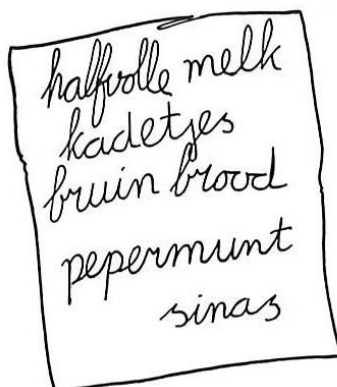 halfvolle melk
kadetjes
bruin brood
pepermunt
sinas